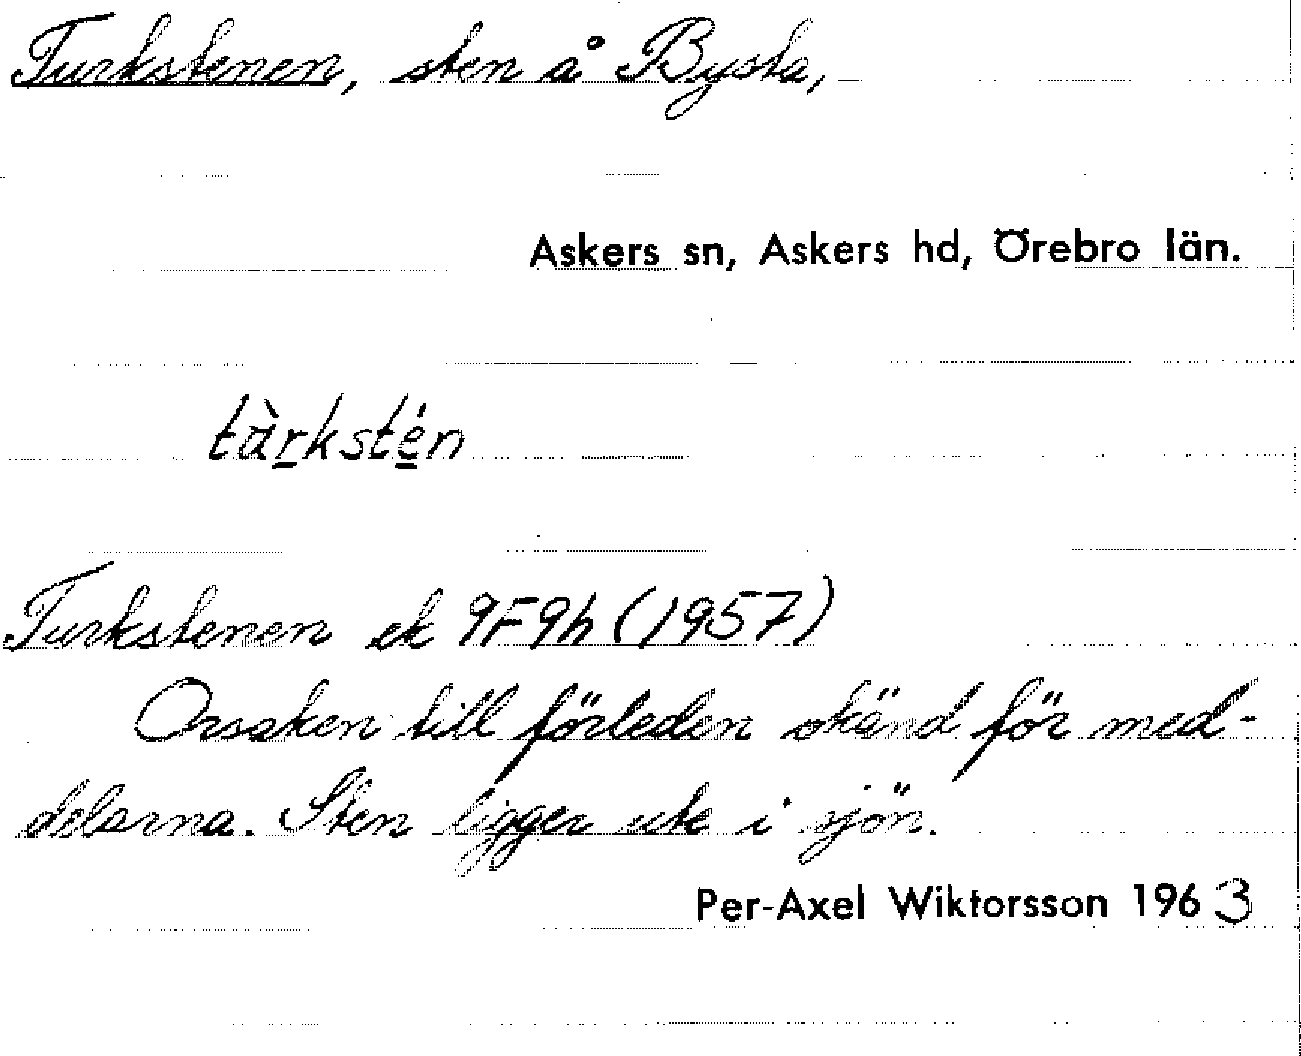 Turkstenen, sten å Bysta,
Askers sn, Askers hd, Örebro län.
tàrkstén
Turkstenen ek 9F9h (1957)
Orsaken till förleden okänd för med-
delarna. Sten ligger ute i sjön.
Per-Axel Wiktorsson 1963